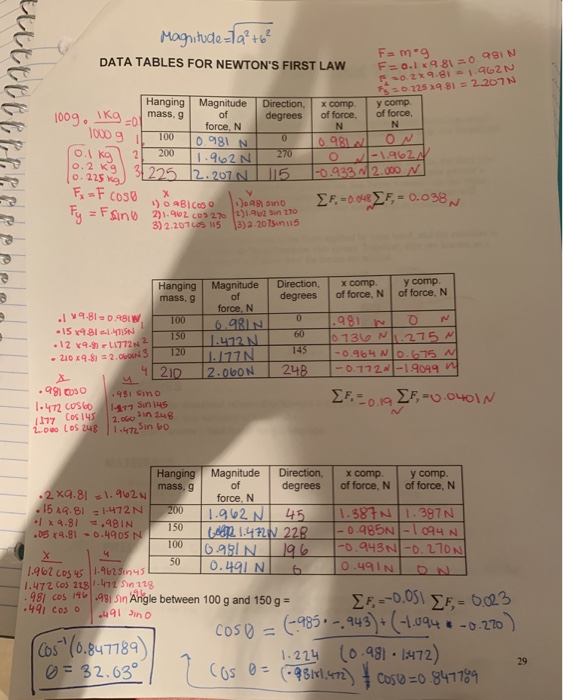 Magnitude = √a²+b²
DATA TABLES FOR NEWTON'S FIRST LAW
F = m*g
F = 0.1 x 9.81 = 0.981 N
F₂ = 0.2 x 9.81 = 1.962 N
F₃ = 0.225 x 9.81 = 2.207 N
100g · 1 Kg
1000 g
0.1 kg
0.2 kg
0.225 kg
Hanging mass, g | Magnitude of force, N | Direction, degrees | x comp. of force, N | y comp. of force, N
1 100 | 0.981 N | 0 | 0.981 N | 0 N
2 200 | 1.962 N | 270 | 0 | -1.962 N
3 225 | 2.207 N | 115 | -0.933 N | 2.000 N
Fₓ = F cosθ
Fy = F sinθ
x | y
1) 0.981 cos 0 | 1) 0.981 sin 0
2) 1.962 cos 270 | 2) 1.962 sin 270
3) 2.207 cos 115 | 3) 2.207 sin 115
ΣFₓ = 0.048 ΣFy = 0.038 N
Hanging mass, g | Magnitude of force, N | Direction, degrees | x comp. of force, N | y comp. of force, N
100 | 0.981 N | 0 | .981 N | 0 N
150 | 1.472 N | 60 | 0.736 N | 1.275 N
120 | 1.177 N | 145 | -0.964 N | 0.675 N
4 210 | 2.060 N | 248 | -0.772 N | -1.9099 N
.1 x 9.81 = 0.981 N
.15 x 9.81 = 1.4715 N
.12 x 9.81 = 1.1772 N 2
.210 x 9.81 = 2.0601 N 3
x | y
.981 cos 0 | .981 sin 0
1.472 cos 60 | 1.177 sin 145
1.177 cos 145 | 2.060 sin 248
2.060 cos 248 | 1.472 sin 60
ΣFₓ = -0.19 N ΣFy = 0.0401 N
Hanging mass, g | Magnitude of force, N | Direction, degrees | x comp. of force, N | y comp. of force, N
200 | 1.962 N | 45 | 1.387 N | 1.387 N
150 | 1.472 N | 228 | -0.985 N | -1.094 N
100 | 0.981 N | 196 | -0.943 N | -0.270 N
50 | 0.491 N | 0 | 0.491 N | 0 N
.2 x 9.81 = 1.962 N
.15 x 9.81 = 1.472 N
.1 x 9.81 = .981 N
.05 x 9.81 = 0.4905 N
x | y
1.962 cos 45 | 1.962 sin 45
1.472 cos 228 | 1.472 sin 228
.981 cos 196 | .981 sin 196
.491 cos 0 | .491 sin 0
Angle between 100 g and 150 g =
ΣFₓ = -0.051 ΣFy = 0.023
cos θ = (-.985 · -.943) + (-1.094 * -0.270)
(0.981 · 1.472)
cos θ = 1.224
(.981x1.472)
cos θ = 0.847789
cos⁻¹(0.847789)
θ = 32.03°
29